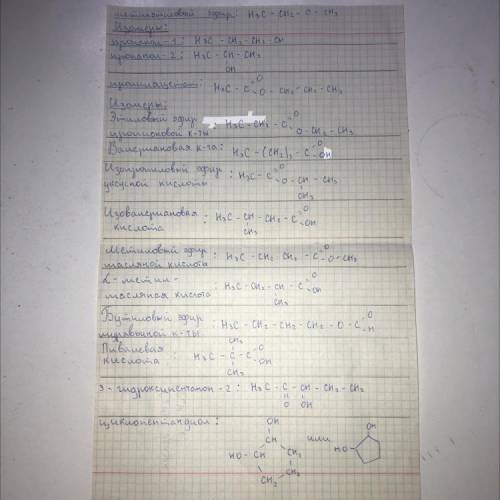 метилэтиловый эфир: H₃C - CH₂ - O - CH₃
Изомеры:
пропанол-1: H₃C - CH₂ - CH₂ - OH
пропанол-2: H₃C - CH - CH₃
OH
пропилацетат: H₃C - C O O - CH₂ - CH₂ - CH₃
Изомеры:
Этиловый эфир пропионовой к-ты H₃C - CH₂ - C O O - CH₂ - CH₃
Валериановая к-та: H₃C - (CH₂)₃ - C O OH
Изопропиловый эфир уксусной кислоты : H₃C - C O O - CH - CH₃
CH₃
Изовалериановая кислота : H₃C - CH - CH₂ - C O OH
CH₃
Метиловый эфир масляной кислоты : H₃C - CH₂ - CH₂ - C O O - CH₃
α - метил - масляная кислота : H₃C - CH₂ - CH - C O OH
CH₃
Бутиловый эфир муравьиной к-ты : H₃C - CH₂ - CH₂ - CH₂ - O - C O H
CH₃
Пивалевая кислота : H₃C - C - C O OH
CH₃
3 - гидроксипентанон - 2 : H₃C - C - CH - CH₂ - CH₃
O OH
циклопентандиол : OH
CH или OH
HO - CH CH₂ HO
CH₂ CH₂